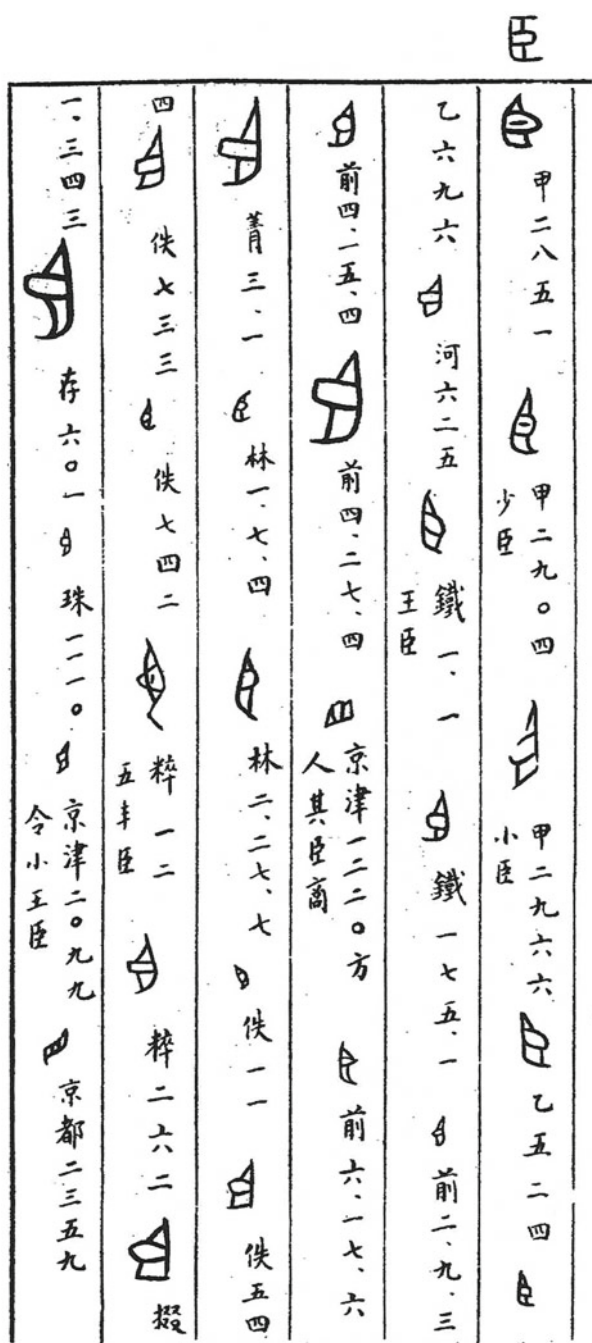 臣
甲二八五一 甲二九〇四 少臣 甲二九六六 小臣 乙五二四
乙六九六 河六二五 鐵一、一 王臣 鐵一七五、一 前二、九、三
前四、一五、四 前四、二七、四 京津一二二〇方人其臣商 前六、一七、六
菁三、一 林一、七、四 林二、二七、七 佚一一 佚五四
四 佚七三三 佚七四二 粹一二 五丰臣 粹二六二 掇
一、三四三 存六〇一 珠一一一〇 京津二〇九九 令小王臣 京都二三五九